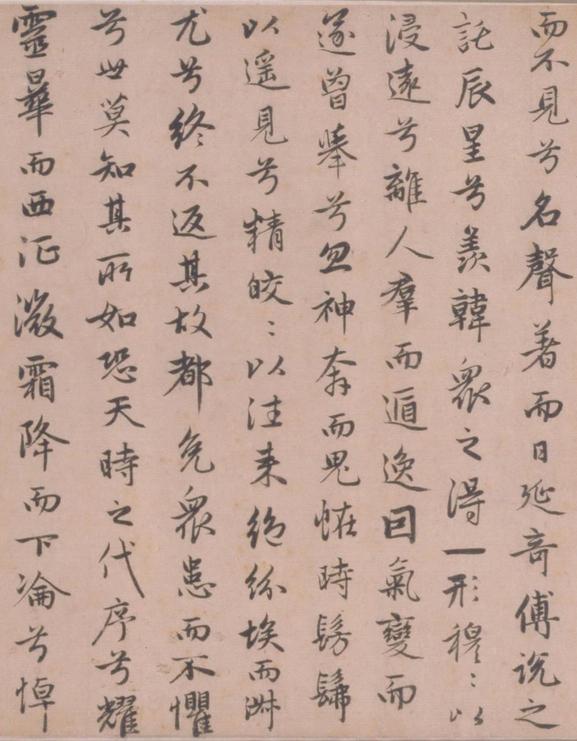 而不見兮名聲著而日延奇傅說之
託辰星兮羨韓衆之得一形穆〻以
浸遠兮離人羣而遁逸囙氣變而
遂曾舉兮忽神奔而鬼恠時髣髴
以遥見兮精皎〻以往来絶紛埃而淑
尤兮終不返其故都免衆患而不懼
兮世莫知其所如恐天時之代序兮耀
靈曄而西征微霜降而下淪兮悼